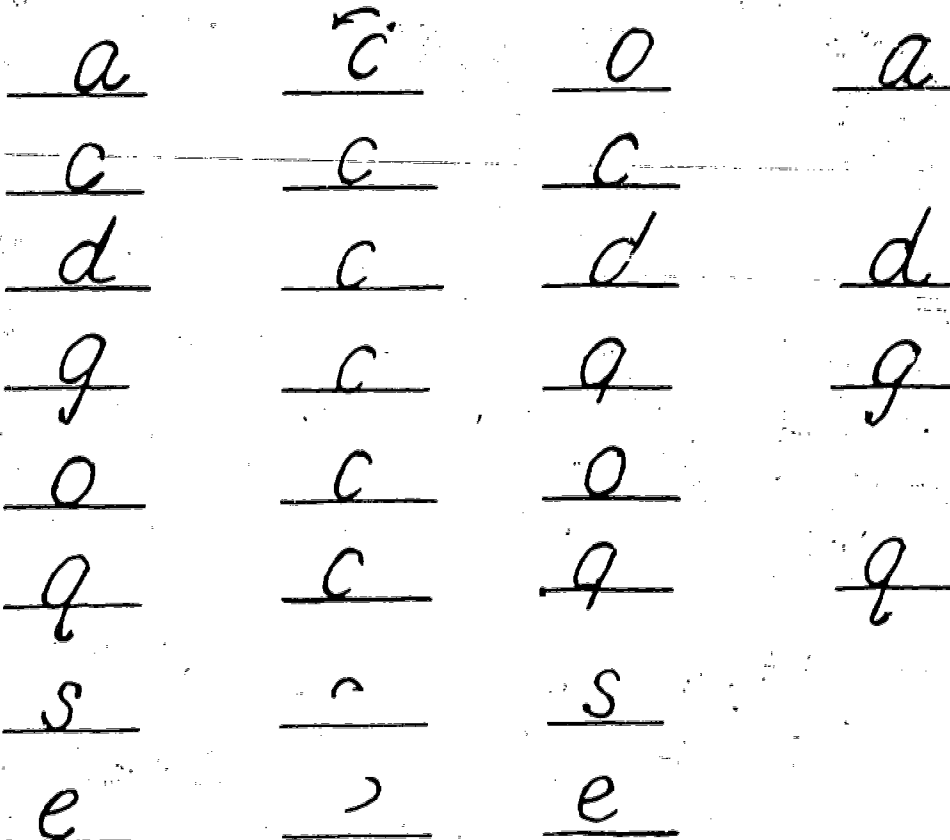 a c o a
c c c
d c d d
g c q g
o c o
q c q q
s s
e e